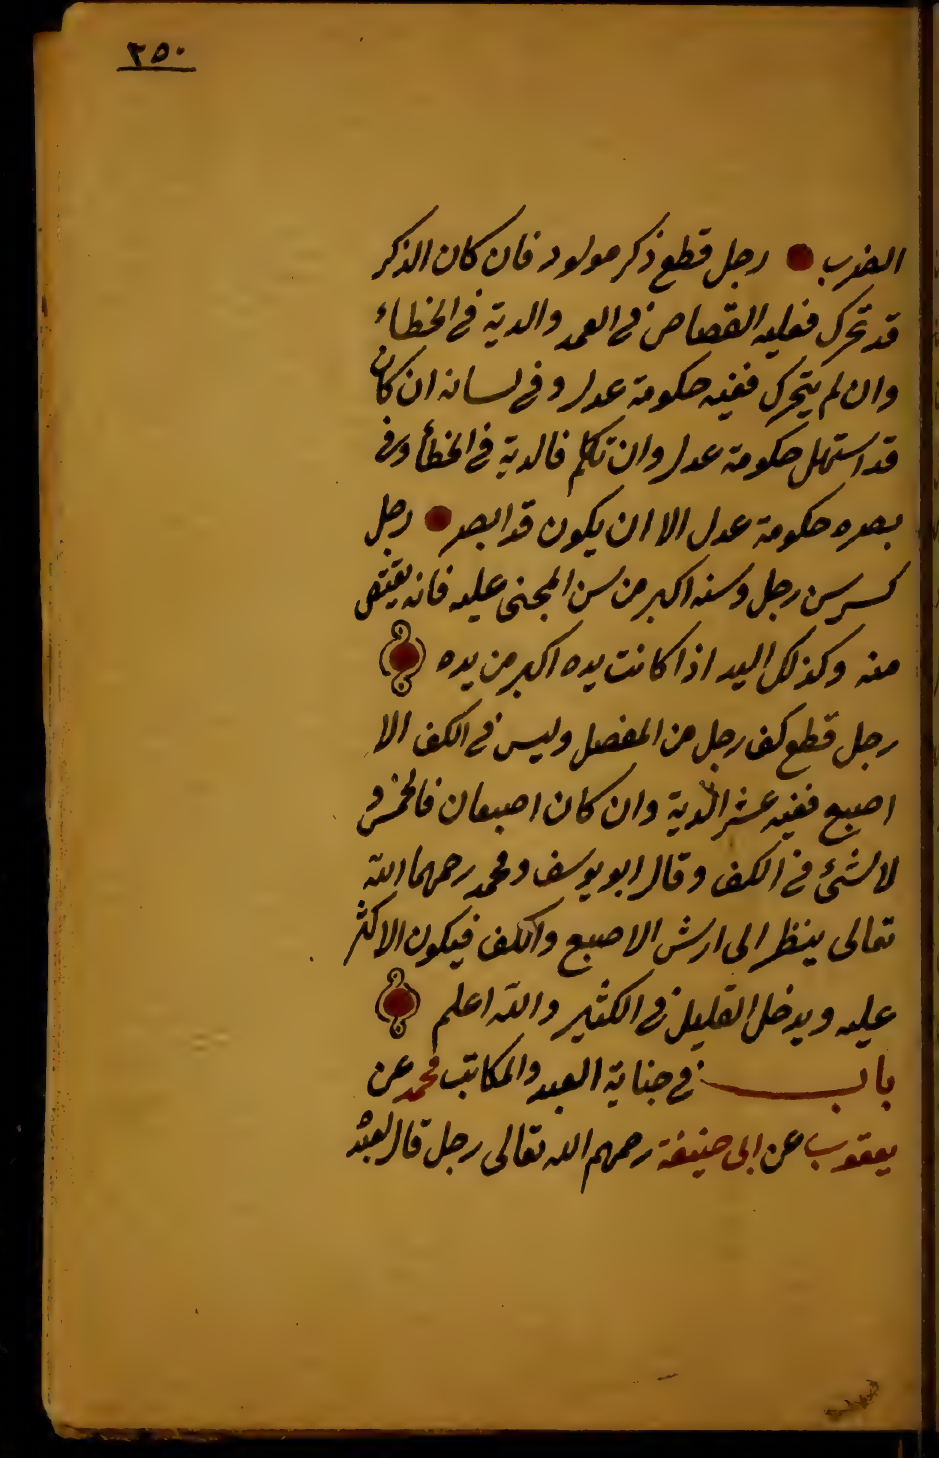 ٢٥٠
الضرب رجل قطع ذكر مولود فان كان الذكر
قد تحرك فعليه القصاص فى العمد والدية فى الخطاء
وان لم يتحرك ففيه حكومة عدل وفى لسانه ان كان
قد استهل حكومة عدل وان تكلم فالدية فى الخطأ وفى
بصره حكومة عدل الا ان يكون قد ابصر رجل
كسر سن رجل وسنه اكبر من سن المجنى عليه فانه يقتص
منه وكذلك اليد اذا كانت يده اكبر من يده
رجل قطع كف رجل من المفصل وليس فى الكف الا
اصبع ففيه عشر الدية وان كان اصبعان فالخمس و
لا شئ فى الكف وقال ابو يوسف ومحمد رحمهما الله
تعالى ينظر الى ارش الاصبع والكف فيكون الاكثر
عليه ويدخل القليل فى الكثير والله اعلم
باب فى جناية العبد والمكاتب محمد عن
يعقوب عن ابى حنيفة رحمهم الله تعالى رجل قال لعبده